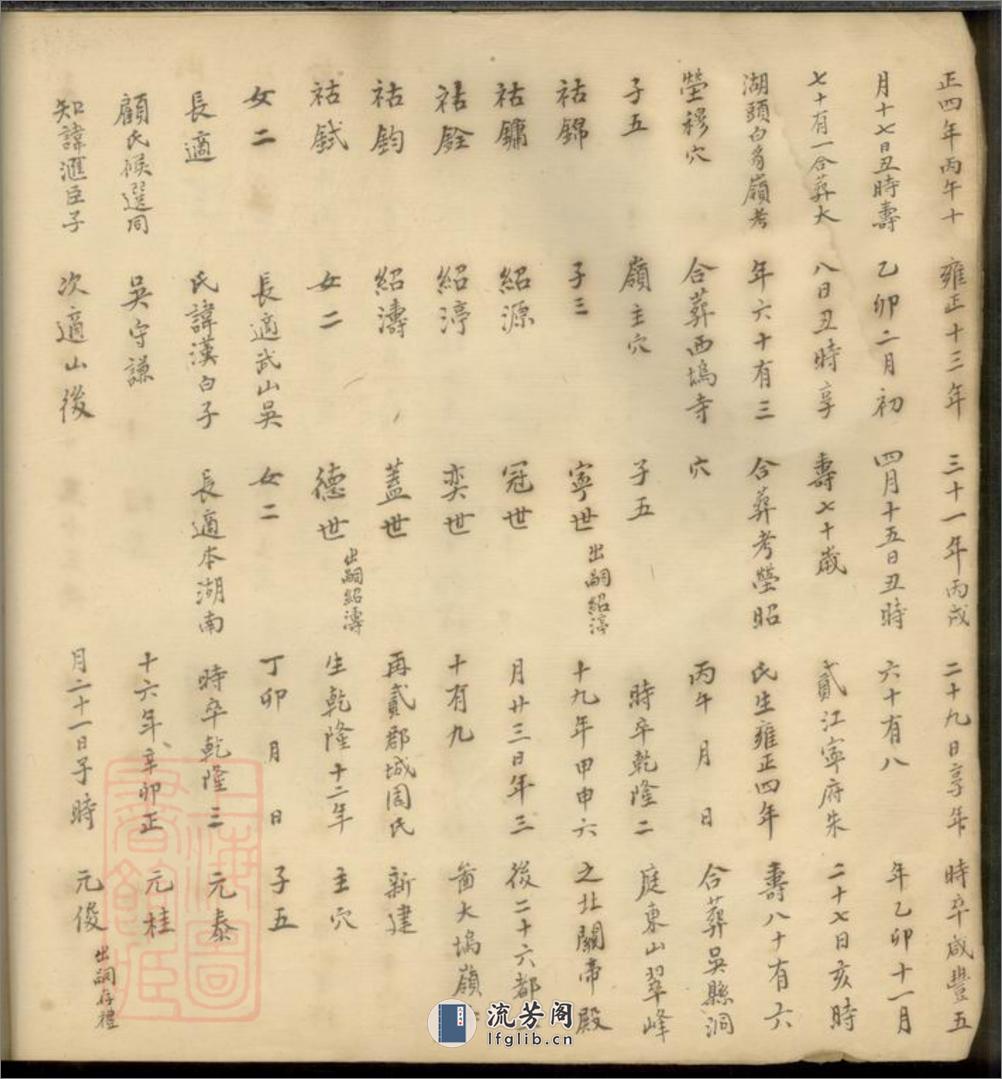 正四年丙午十
月十七日丑時壽
七十有一合葬大
湖頭白豸嶺考
塋穆穴
子五
祜錦
祜鏞
祜銓
祜鈞
祜鉽
女二
長適
顧氏候選同
知諱滙臣子
雍正十三年
乙卯二月初
八日丑時享
年六十有三
合葬西塢寺
嶺主穴
子三
紹源
紹渟
紹濤
女二
長適武山吳
氏諱漢白子
吳守謙
次適山後
三十一年丙戌
四月十五日丑時
壽七十歲
合葬考塋昭
穴
子五
寧世 出嗣紹渟
冠世
奕世
蓋世
德世 出嗣紹濤
女二
長適本湖南
二十九日享年
六十有八
貳江寧府朱
氏生雍正四年
丙午 月 日
時卒乾隆二
十九年甲申六
月廿三日年三
十有九
再貳郡城周氏
生乾隆十二年
丁卯 月 日
時卒乾隆三
十六年、辛卯正
月二十一日子時
時卒咸豐五
年乙卯十一月
二十七日亥時
壽八十有六
合葬吳縣洞
庭東山翠峰
之北關帝殿
後二十六都
啚大塢嶺
新建
主穴
子五
元泰
元桂
元俊 出嗣存禮
流芳阁
lfglib.cn